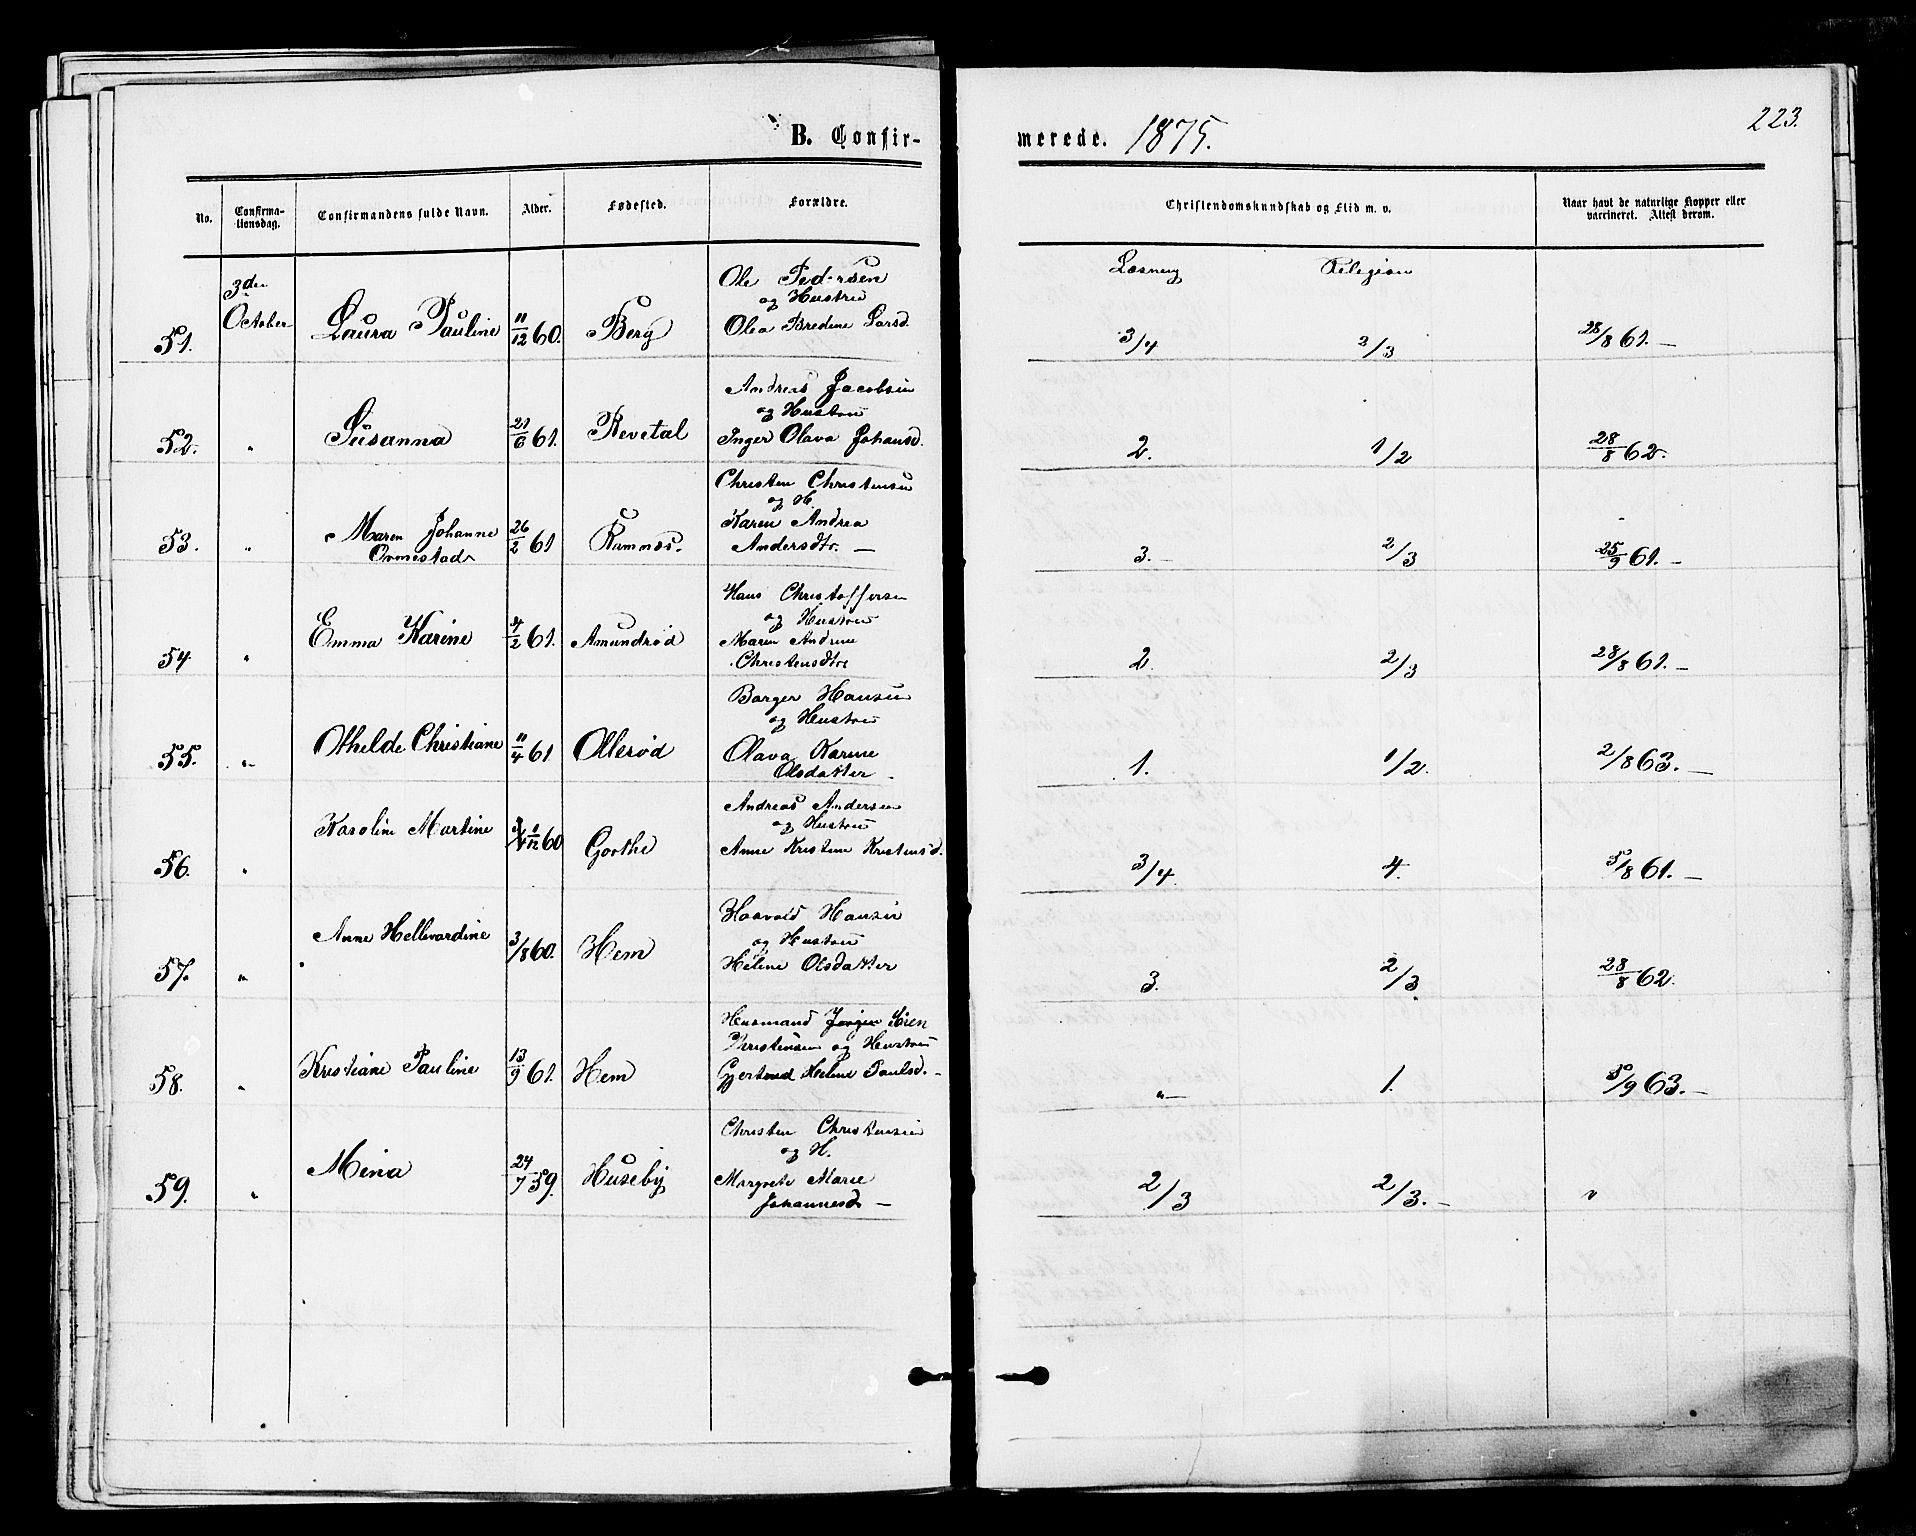 223.
B. Confirmerede. 1875.
No. Confirmationsdag. Confirmandens fulde Navn. Alder. Fødested. Forældre. Christendomskundskab og Flid m. v. Naar havt de naturlige Kopper eller vaccineret. Attest derom.
Læsning Religion
51. 3die October Laura Pauline 11/12 60. Berg Ole Pedersen
og Hustru
Olea Bredine Larsd. 3/4 2/3 28/8 61.—
52. " Susanna 21/6 61. Revetal Andreas Jacobsen
og Hustru
Inger Olava Johansd. 2. 1/2 28/8 62.
53. " Maren Johanne
Ormestad 26/2 61 Ramnæs. Christen Christensen
og H.
Karen Andrea
Andersdtr. — 3.— 2/3 25/9 61.—
54. " Emma Karine 4/2 61. Amundrød Hans Christoffersen
og Hustru
Maren Andrine
Christensdtr. 2. 2/3 28/8 61.—
55. " Othelde Christiane 11/4 61 Ollerød Borger Hansen
og Hustru
Olava Karine
Olsdatter — 1. 1/2. 2/8 63.—
56. " Karoline Martine 1/12 60 Gorthe Andreas Andersen
og Hustru
Anne Kristine Kristensd. 3/4. 4. 5/8 61.—
57. " Anne Hellevardine 3/8 60. Hem Haavald Hansen
og Hustru
Helene Olsdatter 3. 2/3 28/8 62.
58. " Kristiane Pauline 13/9 61. Hem Husmand Jørgen Sören
Christensen og Hustru
Gjertrud Helene Paulsd.— "— 1. 5/9 63.—
59. " Mina 24/7 59. Huseby Christen Christensen
og H.
Margrete Marie
Johannesd. — 2/3 2/3.— "